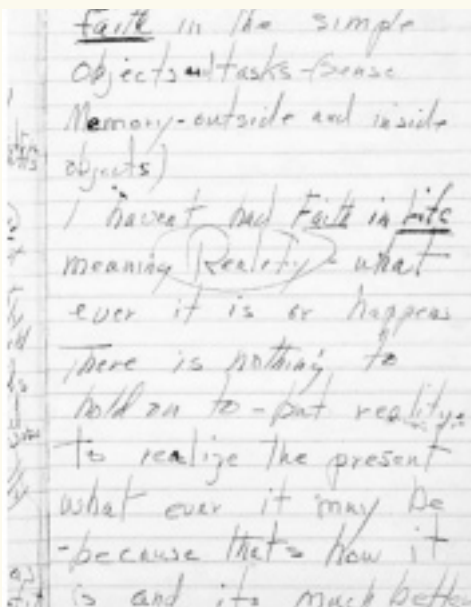 faith in the simple
Objects and tasks-(sense
Memory-outside and inside
objects)
I havent had Faith in Life
meaning Reality- what
ever it is or happens
There is nothing to
hold on to - but reality.
to realize the present
what ever it may be
-because thats how it
is and its much better